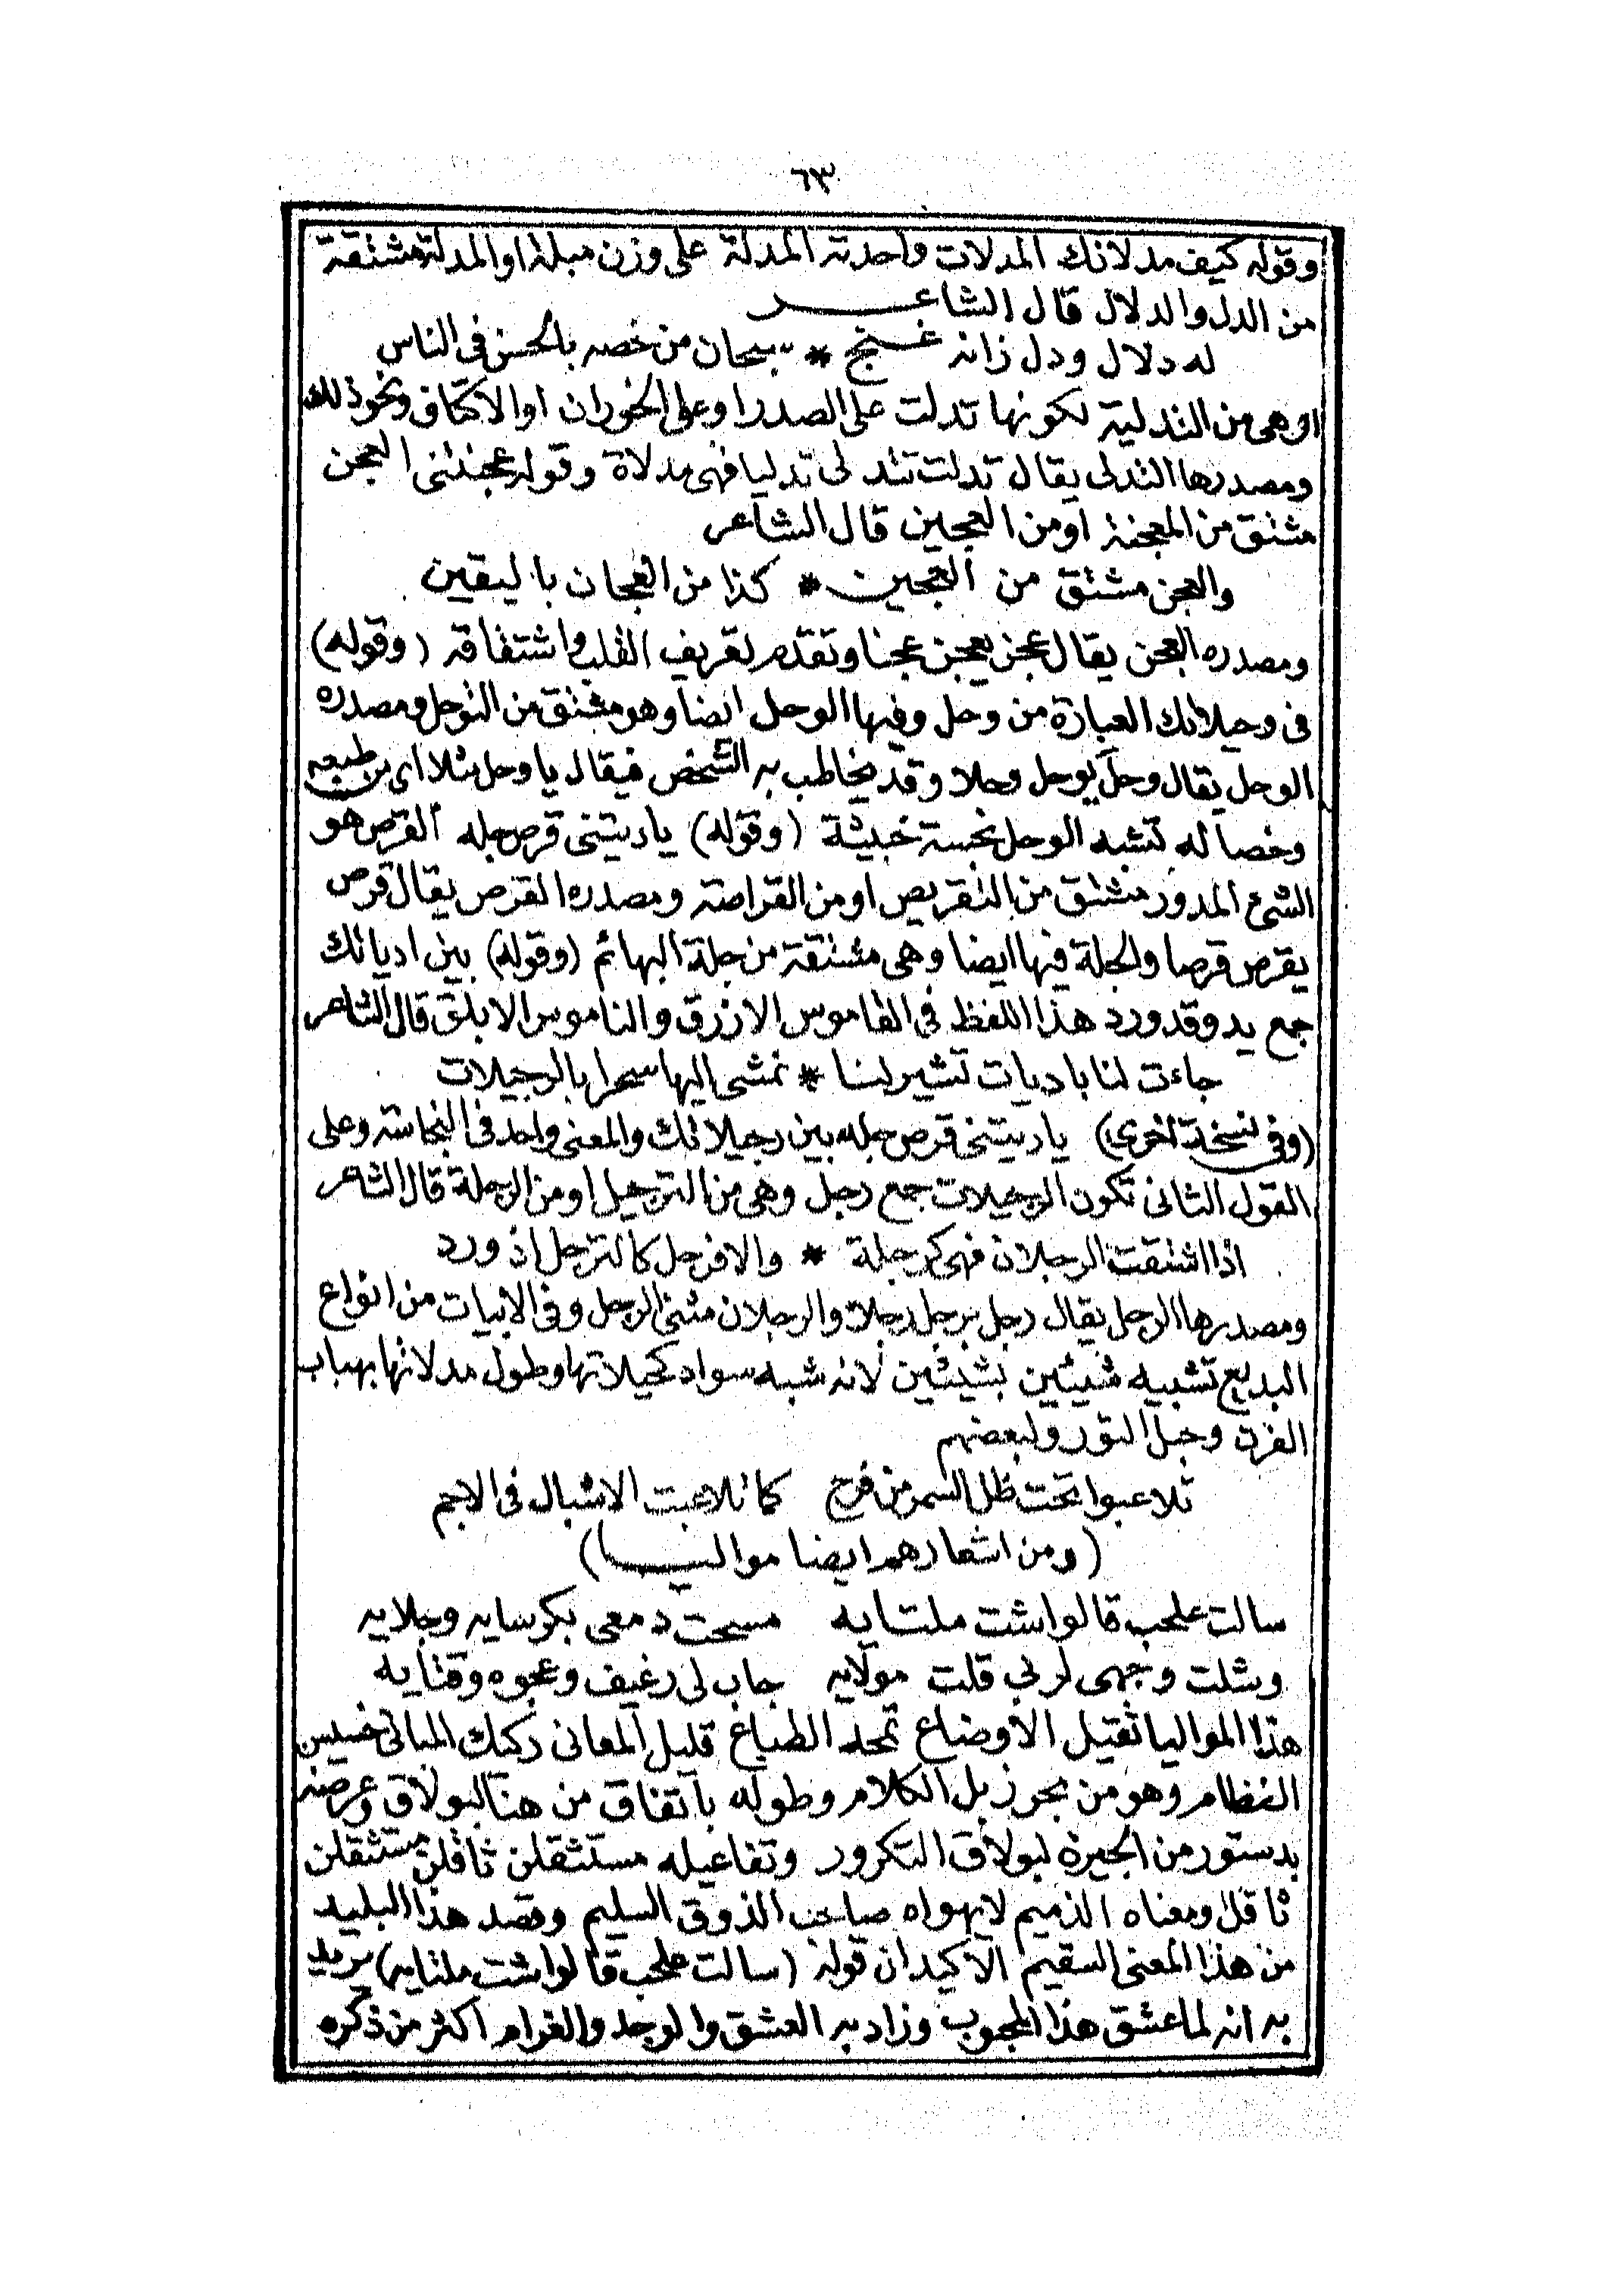 ٦٣
وقوله كيف مدلاتك المدلات واحدته المدلة على وزن مبلة او المدلة مشتقة
من الدل والدلال قال الشاعر
له دلال ودل زانه غنج * سبحان من خصه بالحسن فى الناس
او هى من التدلية لكونها تدلت على الصدر او على الخوران او الاكتاف ونحو ذلك
ومصدرها التدلى يقال تدلت تتدلى تدليا فهى مدلاة وقوله عجنتنى العجن
مشتق من المعجنة او من العجين قال الشاعر
والعجن مشتق من العجين * كذا من العجان باليقين
ومصدره العجن يقال عجن يعجن عجنا وتقدم تعريف القلب واشتقاقه (وقوله)
فى وحيلاتك العبارة من وحل وفيها الوحل ايضا وهو مشتق من التوحل ومصدره
الوحل يقال وحل يوحل وحلا وقد يخاطب به الشخص فيقال يا وحل مثلا اى من طبيعه
وخصاله تشبه الوحل نجسة خبيثة (وقوله) ياريتنى قرص جله القرص هو
الشئ المدور مشتق من التقريص او من القراصة ومصدره القرص يقال قرص
يقرص قرصا والجلة فيها ايضا وهى مشتقة من جلة البهائم (وقوله) بين اديانك
جمع يد وقد ورد هذا اللفظ فى القاموس الازرق والناموس الابلق قال الشاعر
جاءت لنا باديات تشير لنا * نمشى اليها سحرا بالرجيلات
(وفى نسخة اخرى) ياريتنى قرص جله بين رجيلاتك والمعنى واحد فى النجاسة وعلى
القول الثانى تكون الرجيلات جمع رجل وهى من الترجيل او من الرجلة قال الشاعر
اذا اشتقت الرجلان فهى كرجلة * والا فرجل كالترجل اذ ورد
ومصدرها الرجل يقال رجل يرجل رجلا والرجلان مثنى الرجل وفى الابيات من انواع
البديع تشبيه شيئين بشيئين لانه شبه سواد كحيلاتها وطول مدلاتها بهباب
الفرن وحبل التور ولبعضهم
تلاعبوا تحت ظل السمر من فرح كما تلاعبت الاشبال فى الاجم
(ومن اشعارهم ايضا مواليا)
سالت على الحب قالوا اشت ملتايه مسحت دمعى بكرسايه وجلايه
وشلت وجهى لربى قلت مولايه جاب لى رغيف وعجوه وقتايه
هذا المواليا ثقيل الاوضاع تمجه الطباع قليل المعانى ركيك المبانى خسيس
النظام وهو من بحر زبل الكلام وطوله باتفاق من هنا لبولاق وعرضه
بدستور من الجيزة لبولاق التكرور وتفاعيله مستثقلن ثاقلن مستثقلن
ثاقل ومعناه الذميم لا يهواه صاحب الذوق السليم وقصد هذا البليد
من هذا المعنى السقيم الاكيد ان قوله (سالت على الحب قالوا اشت ملتايه) يريد
به انه لما عشق هذا المحبوب وزاد به العشق والوجد والغرام اكثر من ذكره